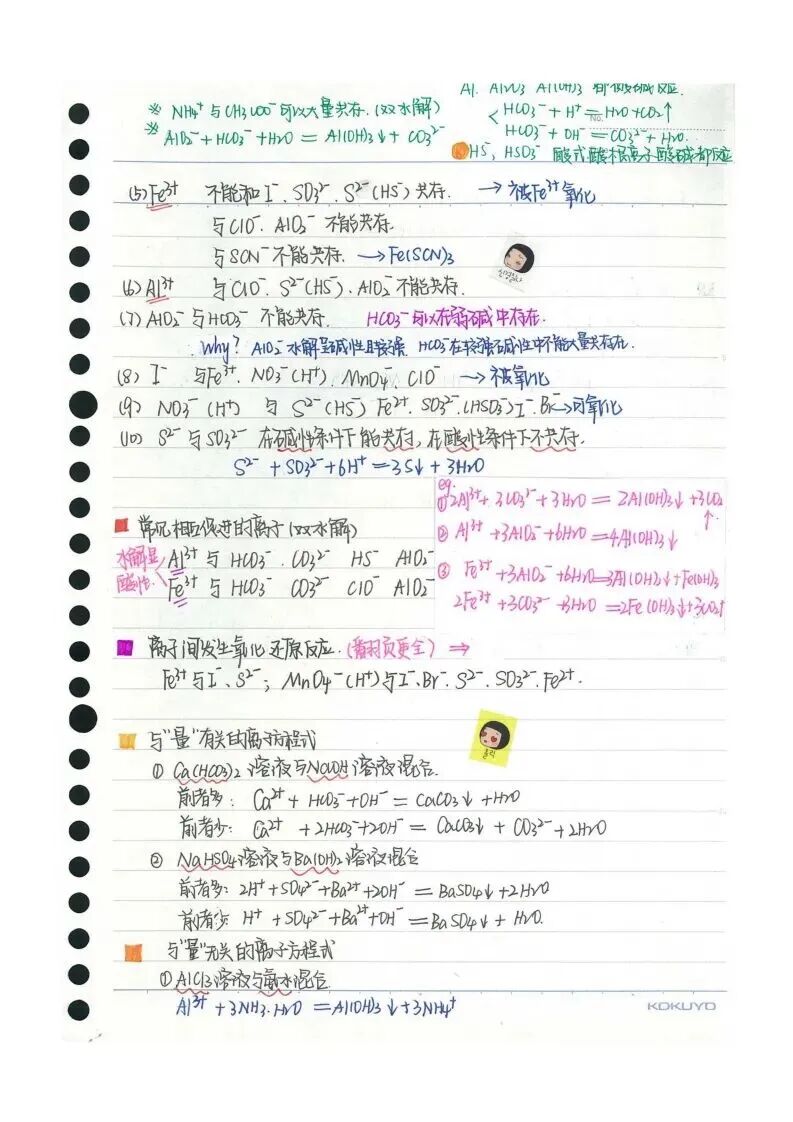 Al. Al₂O₃ Al(OH)₃ 都与酸碱反应.
※ NH₄⁺ 与 CH₃COO⁻ 可以大量共存. (双水解)
HCO₃⁻ + H⁺ = H₂O + CO₂↑
No.
※ AlO₂⁻ + HCO₃⁻ + H₂O = Al(OH)₃↓ + CO₃²⁻
HCO₃⁻ + OH⁻ = CO₃²⁻ + H₂O.
HS⁻, HSO₃⁻ 酸式酸根离子酸碱都反应
(5) Fe³⁺ 不能和 I⁻. SO₃²⁻. S²⁻(HS⁻) 共存. → 被Fe³⁺氧化
与ClO⁻. AlO₂⁻ 不能共存.
与SCN⁻不能共存. → Fe(SCN)₃
(6) Al³⁺ 与ClO⁻. S²⁻(HS⁻). AlO₂⁻不能共存.
(7) AlO₂⁻ 与HCO₃⁻ 不能共存. HCO₃⁻可以在弱碱中存在.
Why? AlO₂⁻水解呈碱性且较强. HCO₃⁻在较强碱性中不能大量共存在.
(8) I⁻ 与Fe³⁺. NO₃⁻(H⁺). MnO₄⁻. ClO⁻ → 被氧化
(9) NO₃⁻(H⁺) 与 S²⁻(HS⁻) Fe²⁺. SO₃²⁻. (HSO₃⁻) I⁻. Br⁻ → 可氧化
(10) S²⁻与SO₃²⁻ 在碱性条件下能共存, 在酸性条件下不共存.
S²⁻ + SO₃²⁻ + 6H⁺ = 3S↓ + 3H₂O
eg.
① 2Al³⁺ + 3CO₃²⁻ + 3H₂O = 2Al(OH)₃↓ + 3CO₂↑
常见相互促进的离子 (双水解)
② Al³⁺ + 3AlO₂⁻ + 6H₂O = 4Al(OH)₃↓
水解显酸性
Al³⁺ 与 HCO₃⁻. CO₃²⁻ HS⁻ AlO₂⁻
Fe³⁺ 与 HCO₃⁻ CO₃²⁻ ClO⁻ AlO₂⁻
③ Fe³⁺ + 3AlO₂⁻ + 6H₂O = 3Al(OH)₃↓ + Fe(OH)₃
2Fe³⁺ + 3CO₃²⁻ 3H₂O = 2Fe(OH)₃↓ + 3CO₂↑
离子间发生氧化还原反应. (翻到页更全) ⇒
Fe³⁺与I⁻. S²⁻; MnO₄⁻(H⁺)与I⁻. Br⁻. S²⁻. SO₃²⁻. Fe²⁺.
与"量"有关的离子方程式
① Ca(HCO₃)₂ 溶液与NaOH溶液混合.
前者多: Ca²⁺ + HCO₃⁻ + OH⁻ = CaCO₃↓ + H₂O
前者少: Ca²⁺ + 2HCO₃⁻ + 2OH⁻ = CaCO₃↓ + CO₃²⁻ + 2H₂O
② NaHSO₄溶液与Ba(OH)₂溶液混合
前者多: 2H⁺ + SO₄²⁻ + Ba²⁺ + 2OH⁻ = BaSO₄↓ + 2H₂O
前者少: H⁺ + SO₄²⁻ + Ba²⁺ + OH⁻ = BaSO₄↓ + H₂O.
与"量"无关的离子方程式
① AlCl₃溶液与氨水混合.
Al³⁺ + 3NH₃·H₂O = Al(OH)₃↓ + 3NH₄⁺
KOKUYO